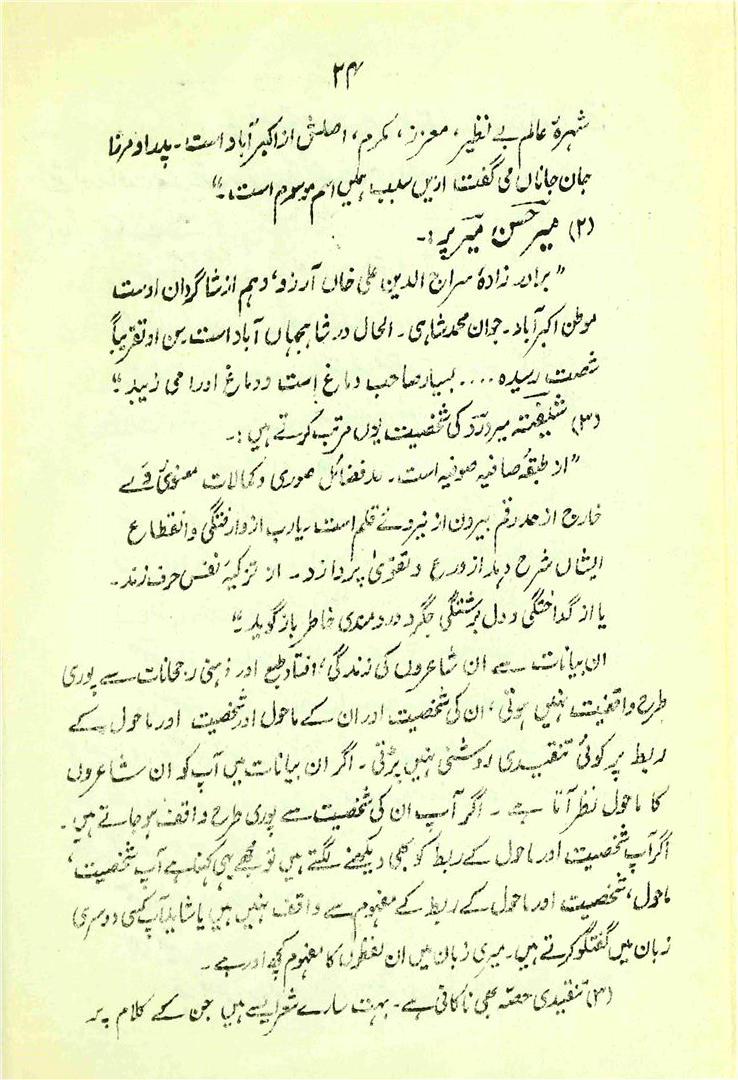 ۳۴
شہرۂ عالم بے نظیر، معزز، مکرم، اصلش از اکبر آباد است۔ پدر او مرزا
جان جاناں می گفت ازیں سبب ہمیں اسم موسوم است۔“
(۲) میر حسن، میر پر :۔
”برادر زادۂ سراج الدین علی خاں آرزو، وہم از شاگردان اوست
موطن اکبر آباد۔ جوان محمد شاہی۔ الحال در شاہجہاں آباد است سن او تقریباً
شصت رسیدہ .... بسیار صاحب دماغ است و دماغ او را می زیبد“
(۳) شیفتہ میر درد کی شخصیت یوں مرتب کرتے ہیں :۔
”از طبقۂ صافیہ صوفیہ است۔ فضائل صوری و کمالات معنوی وے
خارج از حد رقم بیرون از نیروئے قلم است۔ یارب از وارفتگی و انقطاع
ایشاں شرح دہد از ورع و تقویٰ پردازد۔ از تزکیہ نفس حرف زند۔
یا از گداختگی و دل برشتگی جگر و دردمندی خاطر باز گوید۔“
ان بیانات سے ان شاعروں کی زندگی، افتاد طبع اور ذہنی رجحانات سے پوری
طرح واقفیت نہیں ہوتی، ان کی شخصیت اور ان کے ماحول اور شخصیت اور ماحول کے
ربط پر کوئی تنقیدی روشنی نہیں پڑتی۔ اگر ان بیانات میں آپ کو ان شاعروں
کا ماحول نظر آتا ہے۔ اگر آپ ان کی شخصیت سے پوری طرح واقف ہو جاتے ہیں۔
اگر آپ شخصیت اور ماحول کے ربط کو بھی دیکھنے لگتے ہیں تو مجھے یہی کہنا ہے آپ شخصیت،
ماحول، شخصیت اور ماحول کے ربط کے مفہوم سے واقف نہیں ہیں یا شاید آپ کسی دوسری
زبان میں گفتگو کرتے ہیں۔ میری زبان میں ان لفظوں کا مفہوم کچھ اور ہے۔
(۳) تنقیدی حصہ بھی ناکافی ہے۔ بہت سارے شعرا ایسے ہیں جن کے کلام پر